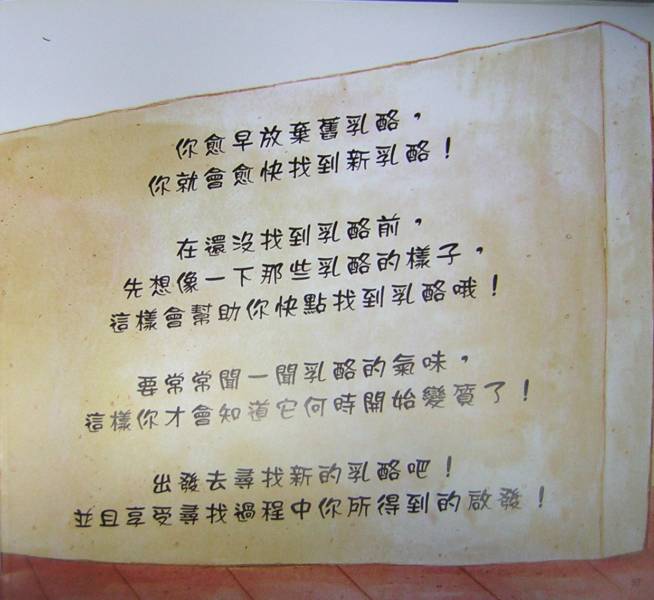 你愈早放棄舊乳酪，
你就會愈快找到新乳酪！
在還沒找到乳酪前，
先想像一下那些乳酪的樣子，
這樣會幫助你快點找到乳酪哦！
要常常聞一聞乳酪的氣味，
這樣你才會知道它何時開始變質了！
出發去尋找新的乳酪吧！
並且享受尋找過程中你所得到的啟發！